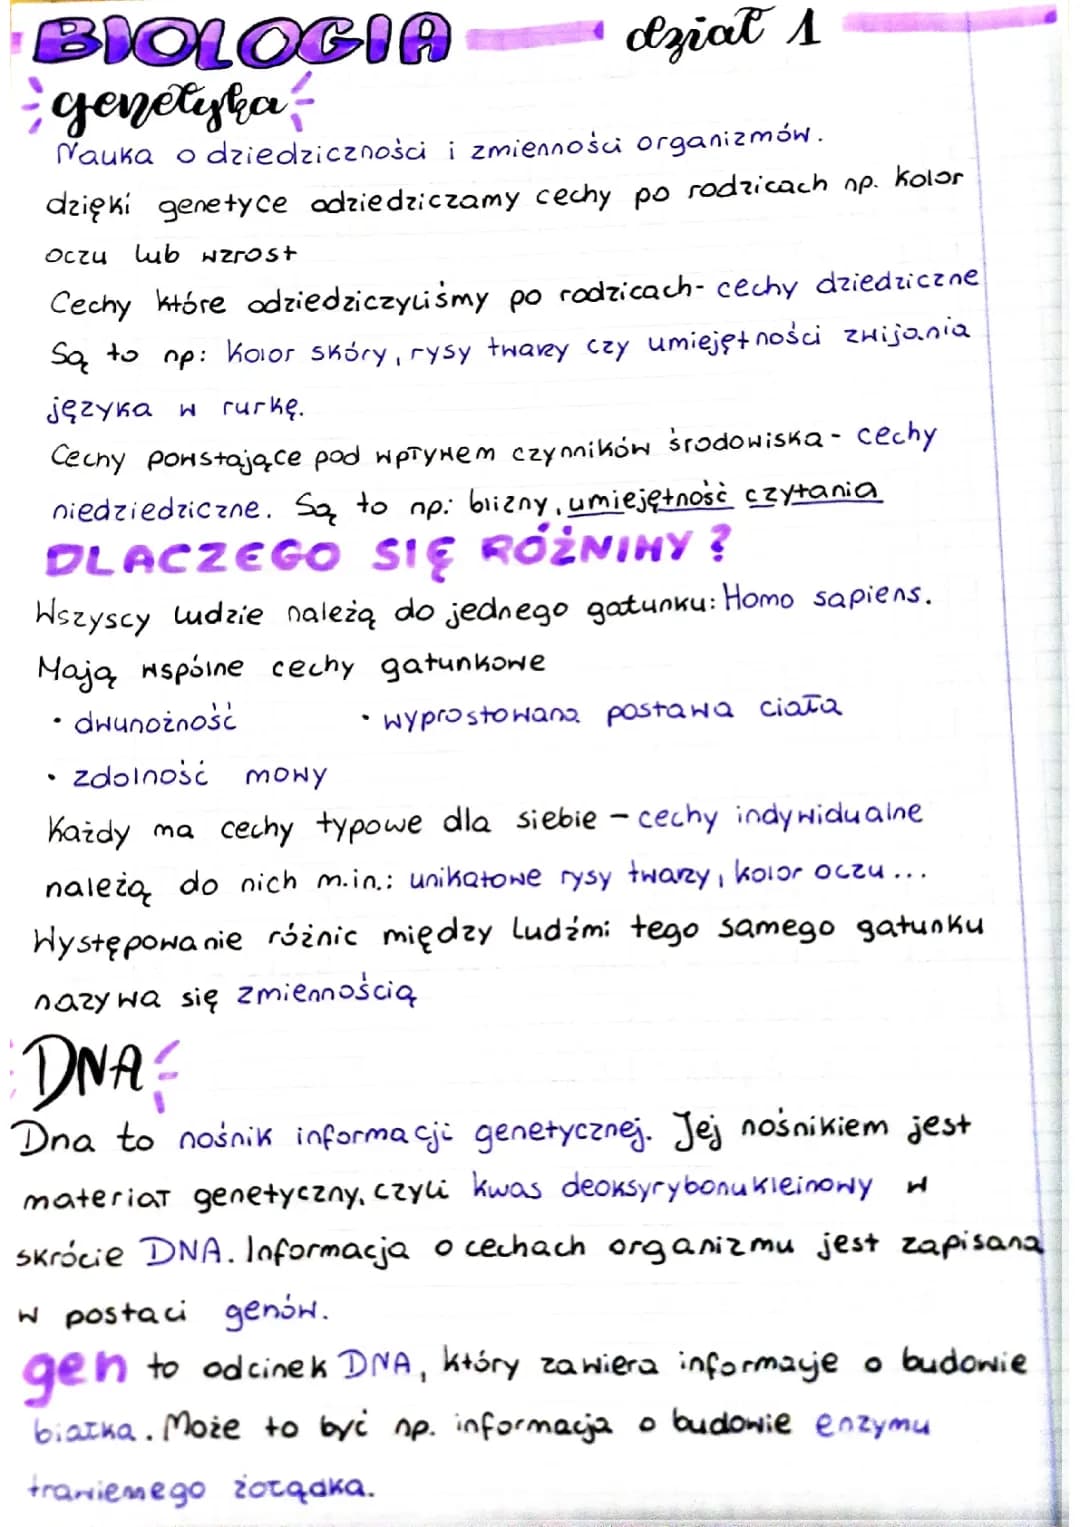 BIOLOGIA dział 1
genetyka
Nauka o dziedziczności i zmienności organizmów.
dzięki genetyce odziedziczamy cechy po rodzicach np. kolor
oczu lub wzrost
Cechy które odziedziczyliśmy po rodzicach- cechy dziedziczne
Są to np: kolor skóry, rysy twarzy czy umiejętności zwijania
języka w rurkę.
Cechy powstające pod wpływem czynników środowiska- cechy
niedziedziczne. Są to np: blizny, umiejętność czytania
DLACZEGO SIĘ RÓŻNIMY?
Wszyscy ludzie należą do jednego gatunku: Homo sapiens.
Mają wspólne cechy gatunkowe
• dwunożność • wyprostowana postawa ciała
• zdolność mowy
Każdy ma cechy typowe dla siebie - cechy indywidualne
należą do nich m.in.: unikatowe rysy twarzy, kolor oczu...
Występowanie różnic między ludźmi tego samego gatunku
nazywa się zmiennością
DNA
Dna to nośnik informacji genetycznej. Jej nośnikiem jest
materiał genetyczny, czyli kwas deoksyrybonukleinowy w
skrócie DNA. Informacja o cechach organizmu jest zapisana
w postaci genów.
gen to odcinek DNA, który zawiera informacje o budowie
białka. Może to być np. informacja o budowie enzymu
trawiennego żołądka.